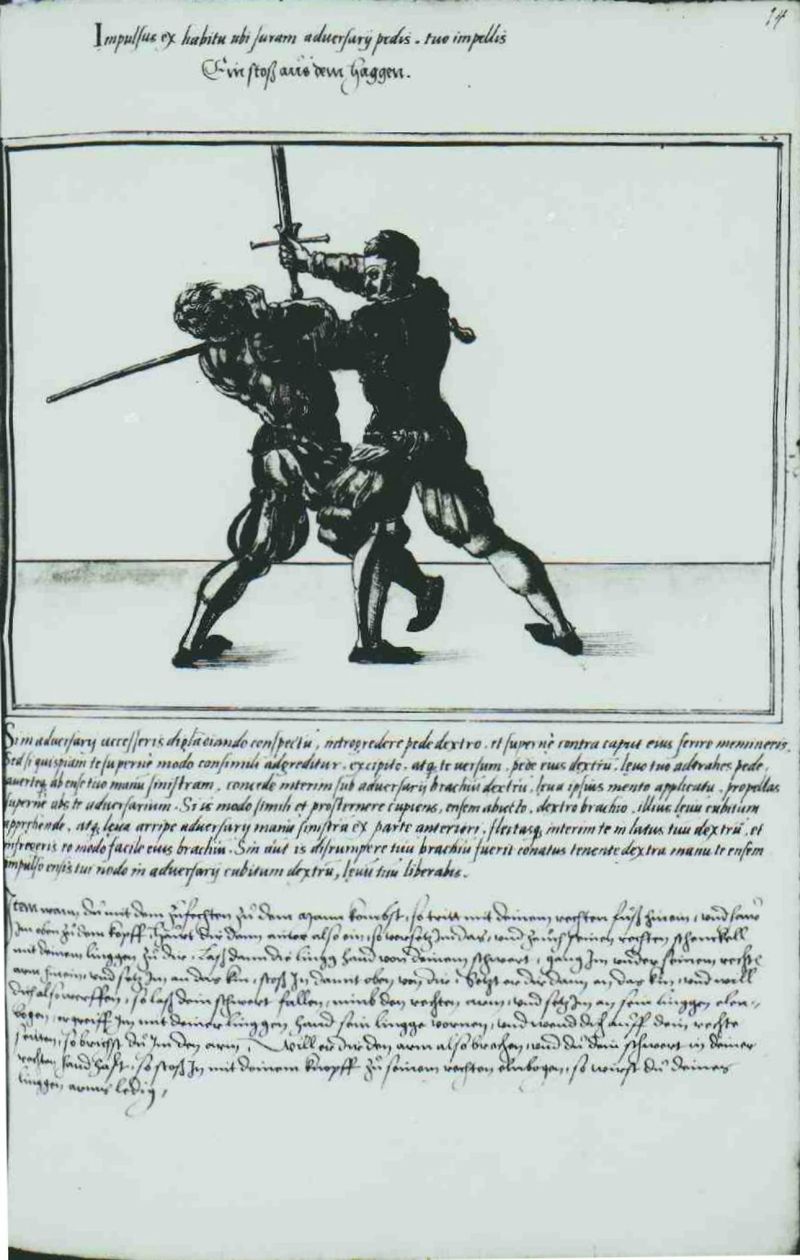 14
Impulsus ex habitu ubi suram adversarij pedis tuo impellis
Ein stoß aus dem haggen.
Si in adversarij accesseris digladiando conspectu, introgredere pede dextro, et superne contra caput eius ferire memineris.
Sed si quispiam te superne modo consimili adgreditur, excipito, atq te versum, pede eius dextru, levo tuo adtrahes pede,
averteq ab ense tuo manu sinistram, concede interim sub adversarij brachiu dextru, leva ipsius mento applicatu, propellas
superne abs te adversarium. Si is modo simili et prosternere cupiens, ensem abiecto, dextro brachio, illius levu cubitum
apprehende, atq leva arripe adversarij manu sinistra ex parte anteriori, flectasq interim te in latus tuu dextru, et
infregeris eo modo facile eius brachiu. Sin aut is disrumpere tuu brachiu fuerit conatus tenente dextra manu te ensem
impulso ensis tui nodo in adversarij cubitum dextru, levu tuu liberabis.
Item wann du mit dem zufechten zu dem Mann kombst, so tritt mit deinem rechten fuß hinein, und haw
Im oben zu dem kopff, Hawt dir dann ainer also ein, so versetz Im das, und zeuch seinen rechten schenckell
mit deinem linggen zu dir, Laß dann die lingg hand von deinem schwert, gang Im under seinem rechte
arm hinein und setz Im an das kin, stoß In damit oben von dir, Setzt er dir dann an das kin, und will
dich also werffen, so laß dein schwert fallen, nimb den rechten arm, und setz Im an sein linggen elen-
bogen, ergreiff Im mit deiner linggen hand sein lingge vornen, und wend dich auff dein rechte
seitten, so brichst du Im den arm, Will er dir den arm also brechen, und du dein schwert in deiner
rechten hand hast, so stoß In mit deinem knopff zu seinem rechten elnbogen, so wirst du deines
linggen arms ledig,